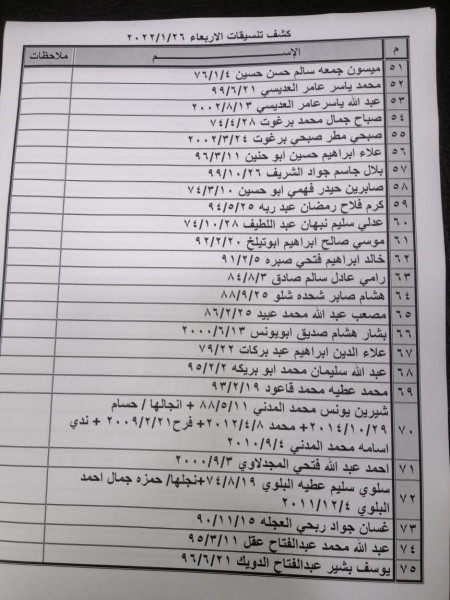 كشف تنسيقات الاربعاء ٢٠٢٢/١/٢٦
م الإســـم ملاحظات
٥١ ميسون جمعه سالم حسن حسين ٧٦/١/٤
٥٢ محمد ياسر عامر العديسي ٩٩/٦/٢١
٥٣ عبد الله ياسرعامر العديسي ٢٠٠٢/٨/١٣
٥٤ صباح جمال محمد برغوت ٧٤/٤/٢٨
٥٥ صبحي مطر صبحي برغوت ٢٠٠٢/٣/٢٤
٥٦ علاء ابراهيم حسين ابو حنين ٩٦/٣/١١
٥٧ بلال جاسم جواد الشريف ٩٩/١٠/٢٦
٥٨ صابرين حيدر فهمي ابو حسين ٧٤/٣/١٠
٥٩ كرم فلاح رمضان عبد ربه ٩٤/٥/٢٥
٦٠ عدلي سليم نبهان عبد اللطيف ٧٤/١٠/٢٨
٦١ موسي صالح ابراهيم ابوتيلخ ٩٢/٢/٢٠
٦٢ خالد ابراهيم فتحي صبره ٩١/٢/٥
٦٣ رامي عادل سالم صادق ٨٤/٨/٣
٦٤ هشام صابر شحده شلو ٨٨/٩/٢٥
٦٥ مصعب عبد الله محمد عبيد ٨٦/٢/٢٥
٦٦ بشار هشام صديق ابويونس ٢٠٠٠/٦/١٣
٦٧ علاء الدين ابراهيم عبد بركات ٧٩/٢٢
٦٨ عبد الله سليمان محمد ابو بريكه ٩٥/٢/٢
٦٩ محمد عطيه محمد قاعود ٩٣/٢/١٩
شيرين يونس محمد المدني ٨٨/٥/١١ + انجالها / حسام
٧٠ ٢٠١٤/١٠/٢٩ + محمد ٢٠١٢/٤/٨+ فرح٢٠٠٩/٢/٢١ + ندي
اسامه محمد المدني ٢٠١٠/٩/٤
٧١ احمد عبد الله فتحي المجدلاوي ٢٠٠٠/٩/٣
٧٢ سلوي سليم عطيه البلوي ٧٤/٨/١٩+نجلها/ حمزه جمال احمد
البلوي ٢٠١١/١٢/٤
٧٣ غسان جواد ربحي العجله ٩٠/١١/١٥
٧٤ عبد الله محمد عبدالفتاح عقل ٩٥/٣/١١
٧٥ يوسف بشير عبدالفتاح الدويك ٩٦/٦/٢١